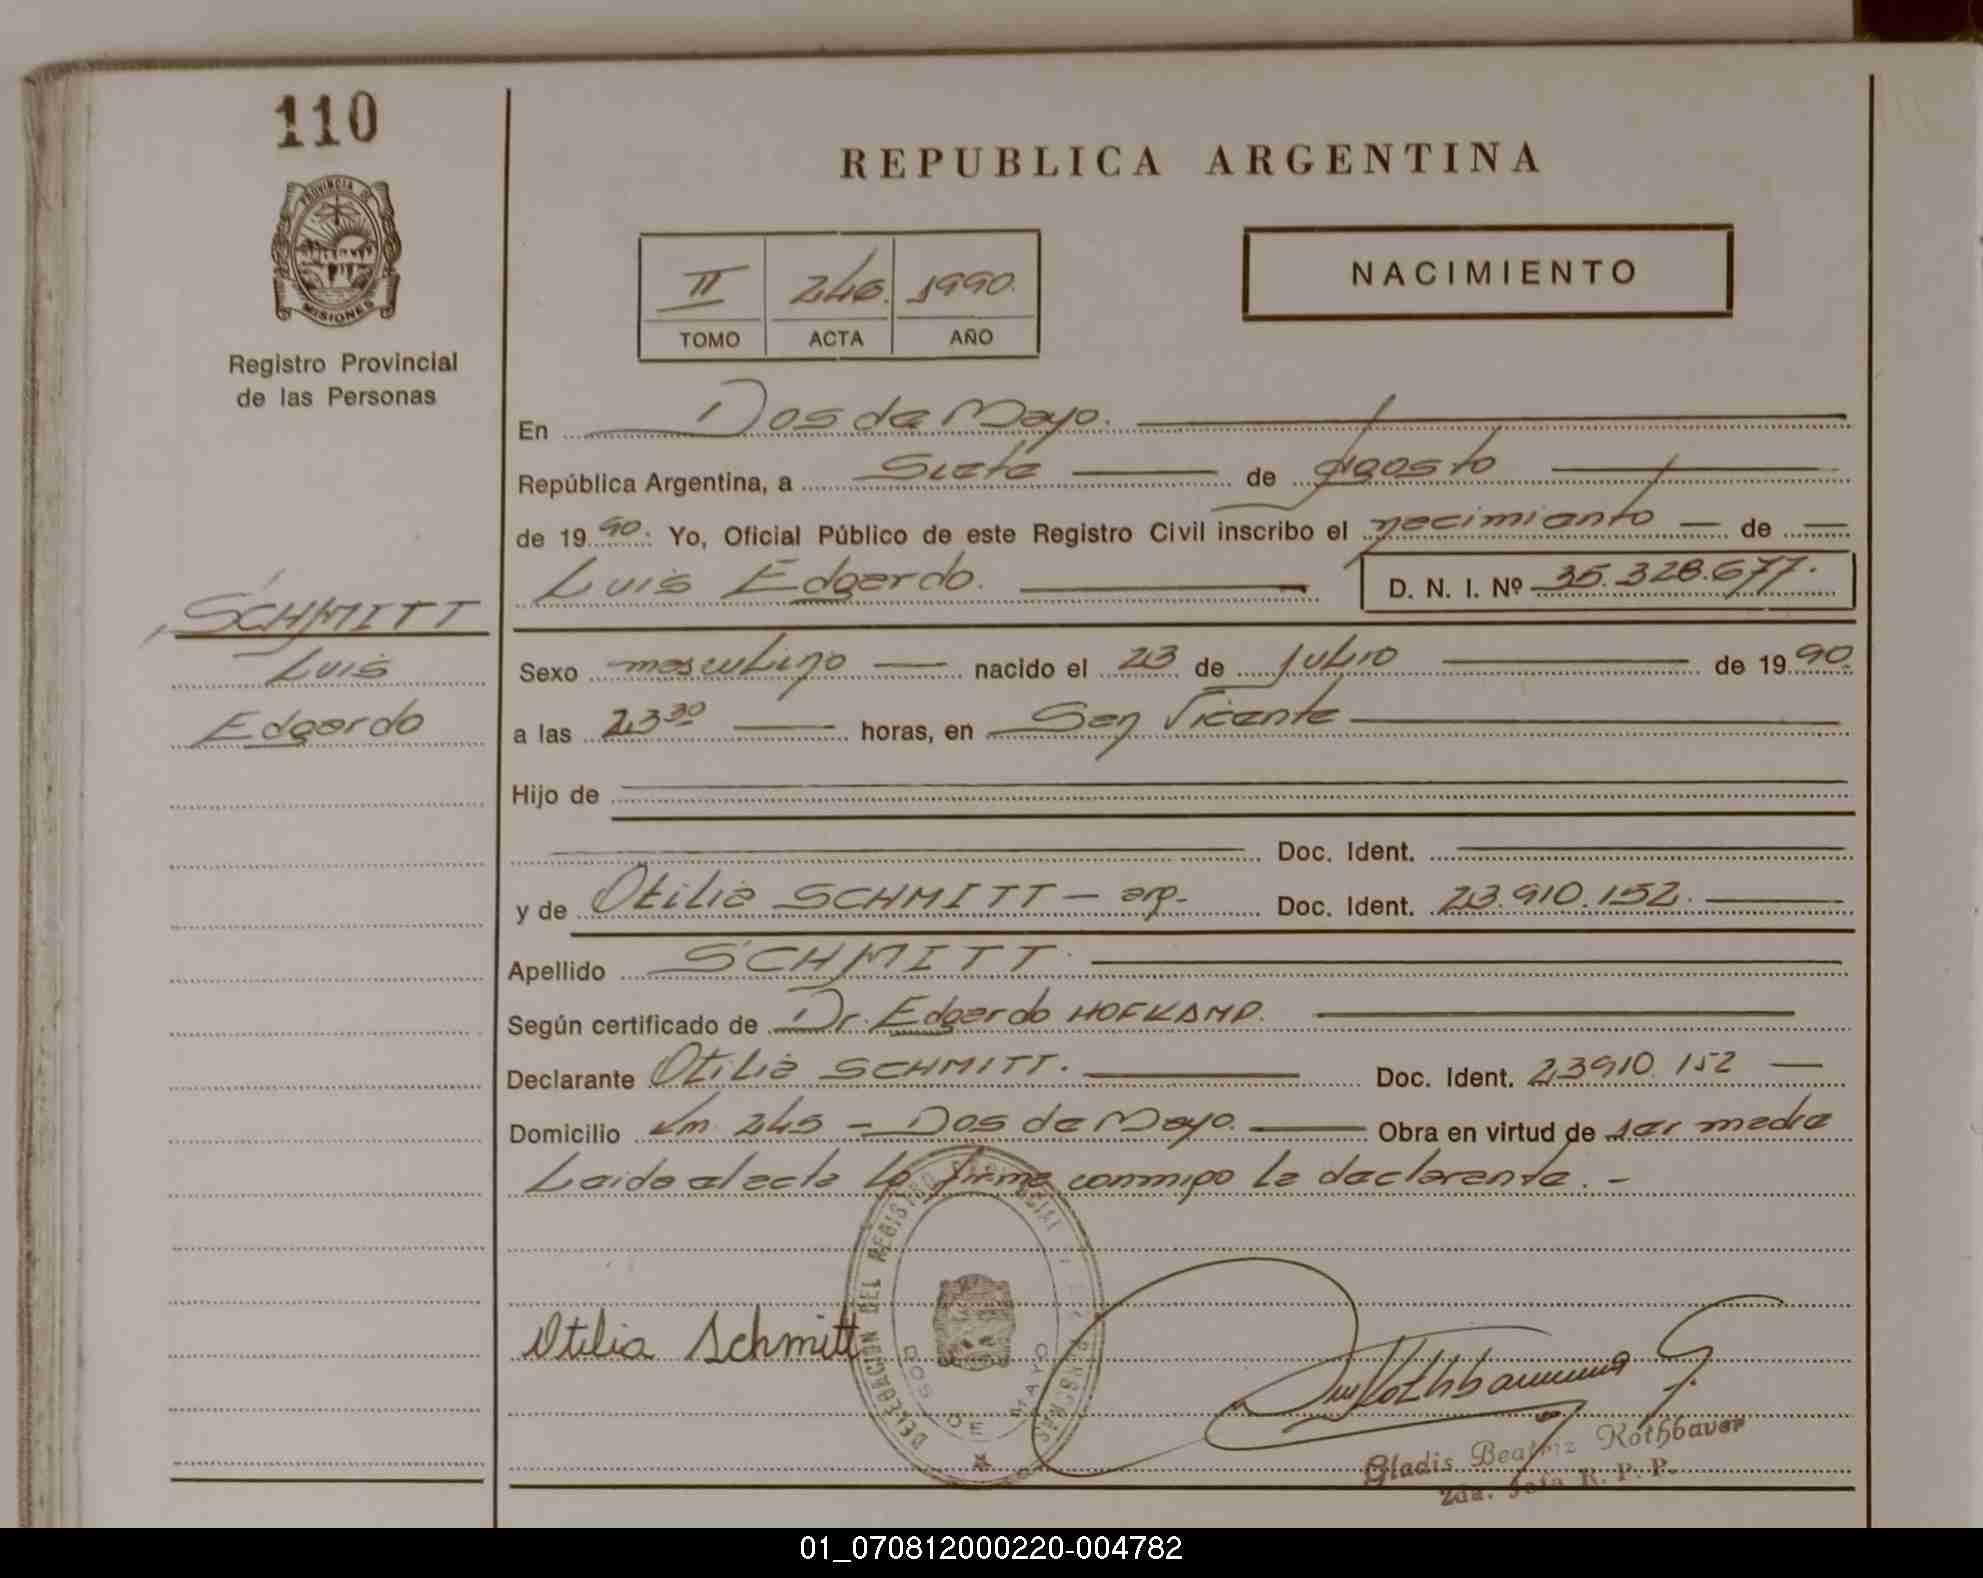 110
PROVINCIA DE
MISIONES
Registro Provincial
de las Personas
SCHMITT
Luis
Edgardo
REPUBLICA ARGENTINA
II 246. 1990.
TOMO ACTA AÑO
NACIMIENTO
En Dos de Mayo.
República Argentina, a Siete de Agosto
de 19 90. Yo, Oficial Público de este Registro Civil inscribo el nacimiento de
Luis Edgardo. D. N. I. Nº 35.328.677.
Sexo masculino nacido el 23 de julio de 19 90.
a las 23 30 horas, en San Vicente
Hijo de
Doc. Ident.
y de Otilia SCHMITT - arg. - Doc. Ident. 23.910.152.
Apellido SCHMITT
Según certificado de Dr. Edgardo HOFKAMP.
Declarante Otilia SCHMITT. Doc. Ident. 23910.152
Domicilio Km 245 - Dos de Mayo. Obra en virtud de ser madre
Leida el acta la firma conmigo la declarante. -
DELEGACION DEL REGISTRO PROVINCIAL DE LAS PERSONAS
DOS DE MAYO
Otilia Schmitt
Gladis Beatriz Rothbauer
2da. Jefa R. P. P.
01_070812000220-004782